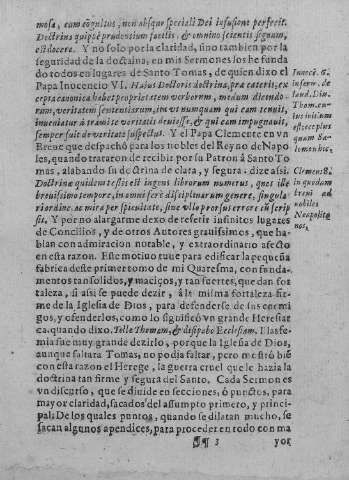 mosa, cum cognitus, non absque speciali Dei infusione perfecit.
Doctrina quippe prudentium facilis, & omnino scientis segnum,
est docere. Y no solo por la claridad, sino tambien por la
seguridad de la doctrina, en mis Sermones los he fun
dado todos en lugares de Santo Tomas, de quien dixo el
Papa Inocencio VI. Huius Doctoris doctrina, præ cæteris, ex
cepta canonica habet proprietatem verborum, modum dicendo-
rum, veritatem sententiarum, ita vt nunquam qui eam tenuit,
inueniatur à tramite veritatis deuiasse, & qui eam impugnauit,
semper fuit de veritate suspectus. Y el Papa Clemente en vn
Breue que despachò para los nobles del Reyno de Napo
les, quando trataron de recibir por su Patron à Santo To
mas, alabando su doctrina de clara, y segura, dize assi.
Doctrinæ quidem testis est ingens librorum numerus, quos ille
breuissimo tempore, in omni ferè disciplinarum genere, singula-
ri ordine, ac mira perspicuitate, sine vllo prorsus errore conscrip
sit. Y por no alargarme dexo de referir infinitos lugares
de Concilios, y de otros Autores grauissimos, que ha-
blan con admiracion notable, y extraordinario afecto
en esta razon. Este motiuo tuue para edificar la pequeña
fabrica deste primer tomo de mi Quaresma, con funda-
mentos tan solidos, y maciços, y tan fuertes, que dan for
taleza, si assi se puede dezir, à la misma fortaleza fir-
me de la Iglesia de Dios, para defenderse de sus enemi
gos, y ofenderlos, como lo significò vn grande Heresiar
ca, quando dixo. Tolle Thomam, & dissipabo Ecclesiam. Blasfe
mia fue muy grande dezirlo, porque la Iglesia de Dios,
aunque faltara Tomas, no podia faltar, pero mostrò biē
con esta razon el Herege, la guerra cruel que le hazia la
doctrina tan firme y segura del Santo. Cada Sermon es
vn discurso, que se diuide en secciones, ò puntos, para
mayor claridad, sacados del assumpto primero, y princi-
pal. De los quales puntos, quando se dilatan mucho, se
sacan algunos apendices, para proceder en todo con ma
¶¶ 3 yor
Innocē. 6.
in serm. de
laud. Diu.
Thom. au-
lemonibus.
Clemens 8.
in quodam
breui ad
nobiles
Neapolita
nos.